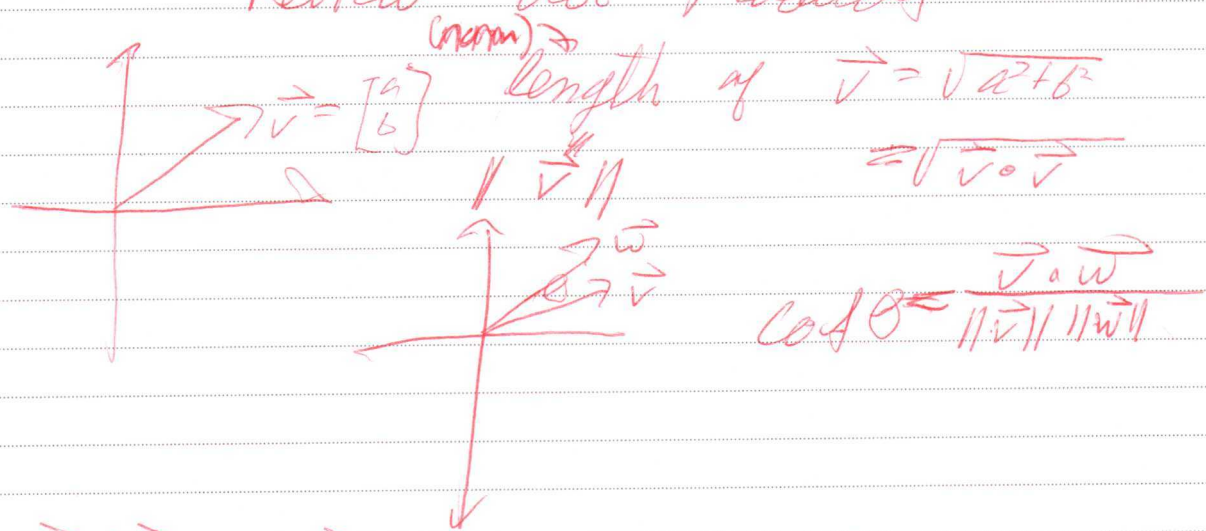 (norm)
v⃗ = [a b] length of v⃗ = √a²+b²
‖v⃗‖ = √v⃗∘v⃗
w⃗
θ v⃗
cos θ = v⃗∘w⃗ / ‖v⃗‖ ‖w⃗‖